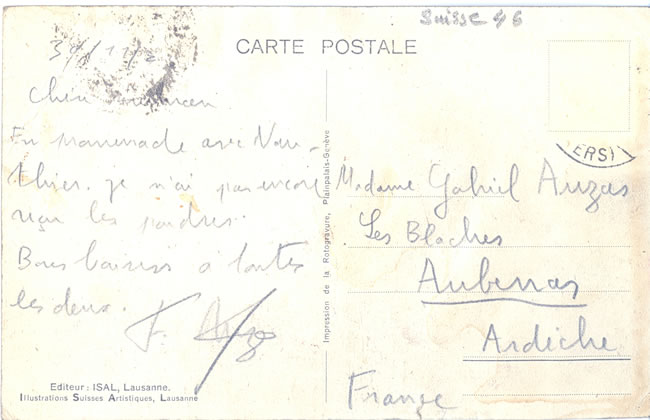 Suisse
CARTE POSTALE
En promenade avec Vau-
thier. je n'ai pas encore
reçu les poudres.
Bons baisers a toutes
les deux.
Editeur: ISAL, Lausanne.
Illustrations Suisses Artistiques, Lausanne
Impression de la Rotogravure, Plainpalais-Genève
ERSI
Madame Gabriel Auzas
Les Blaches
Aubenas
Ardèche
France